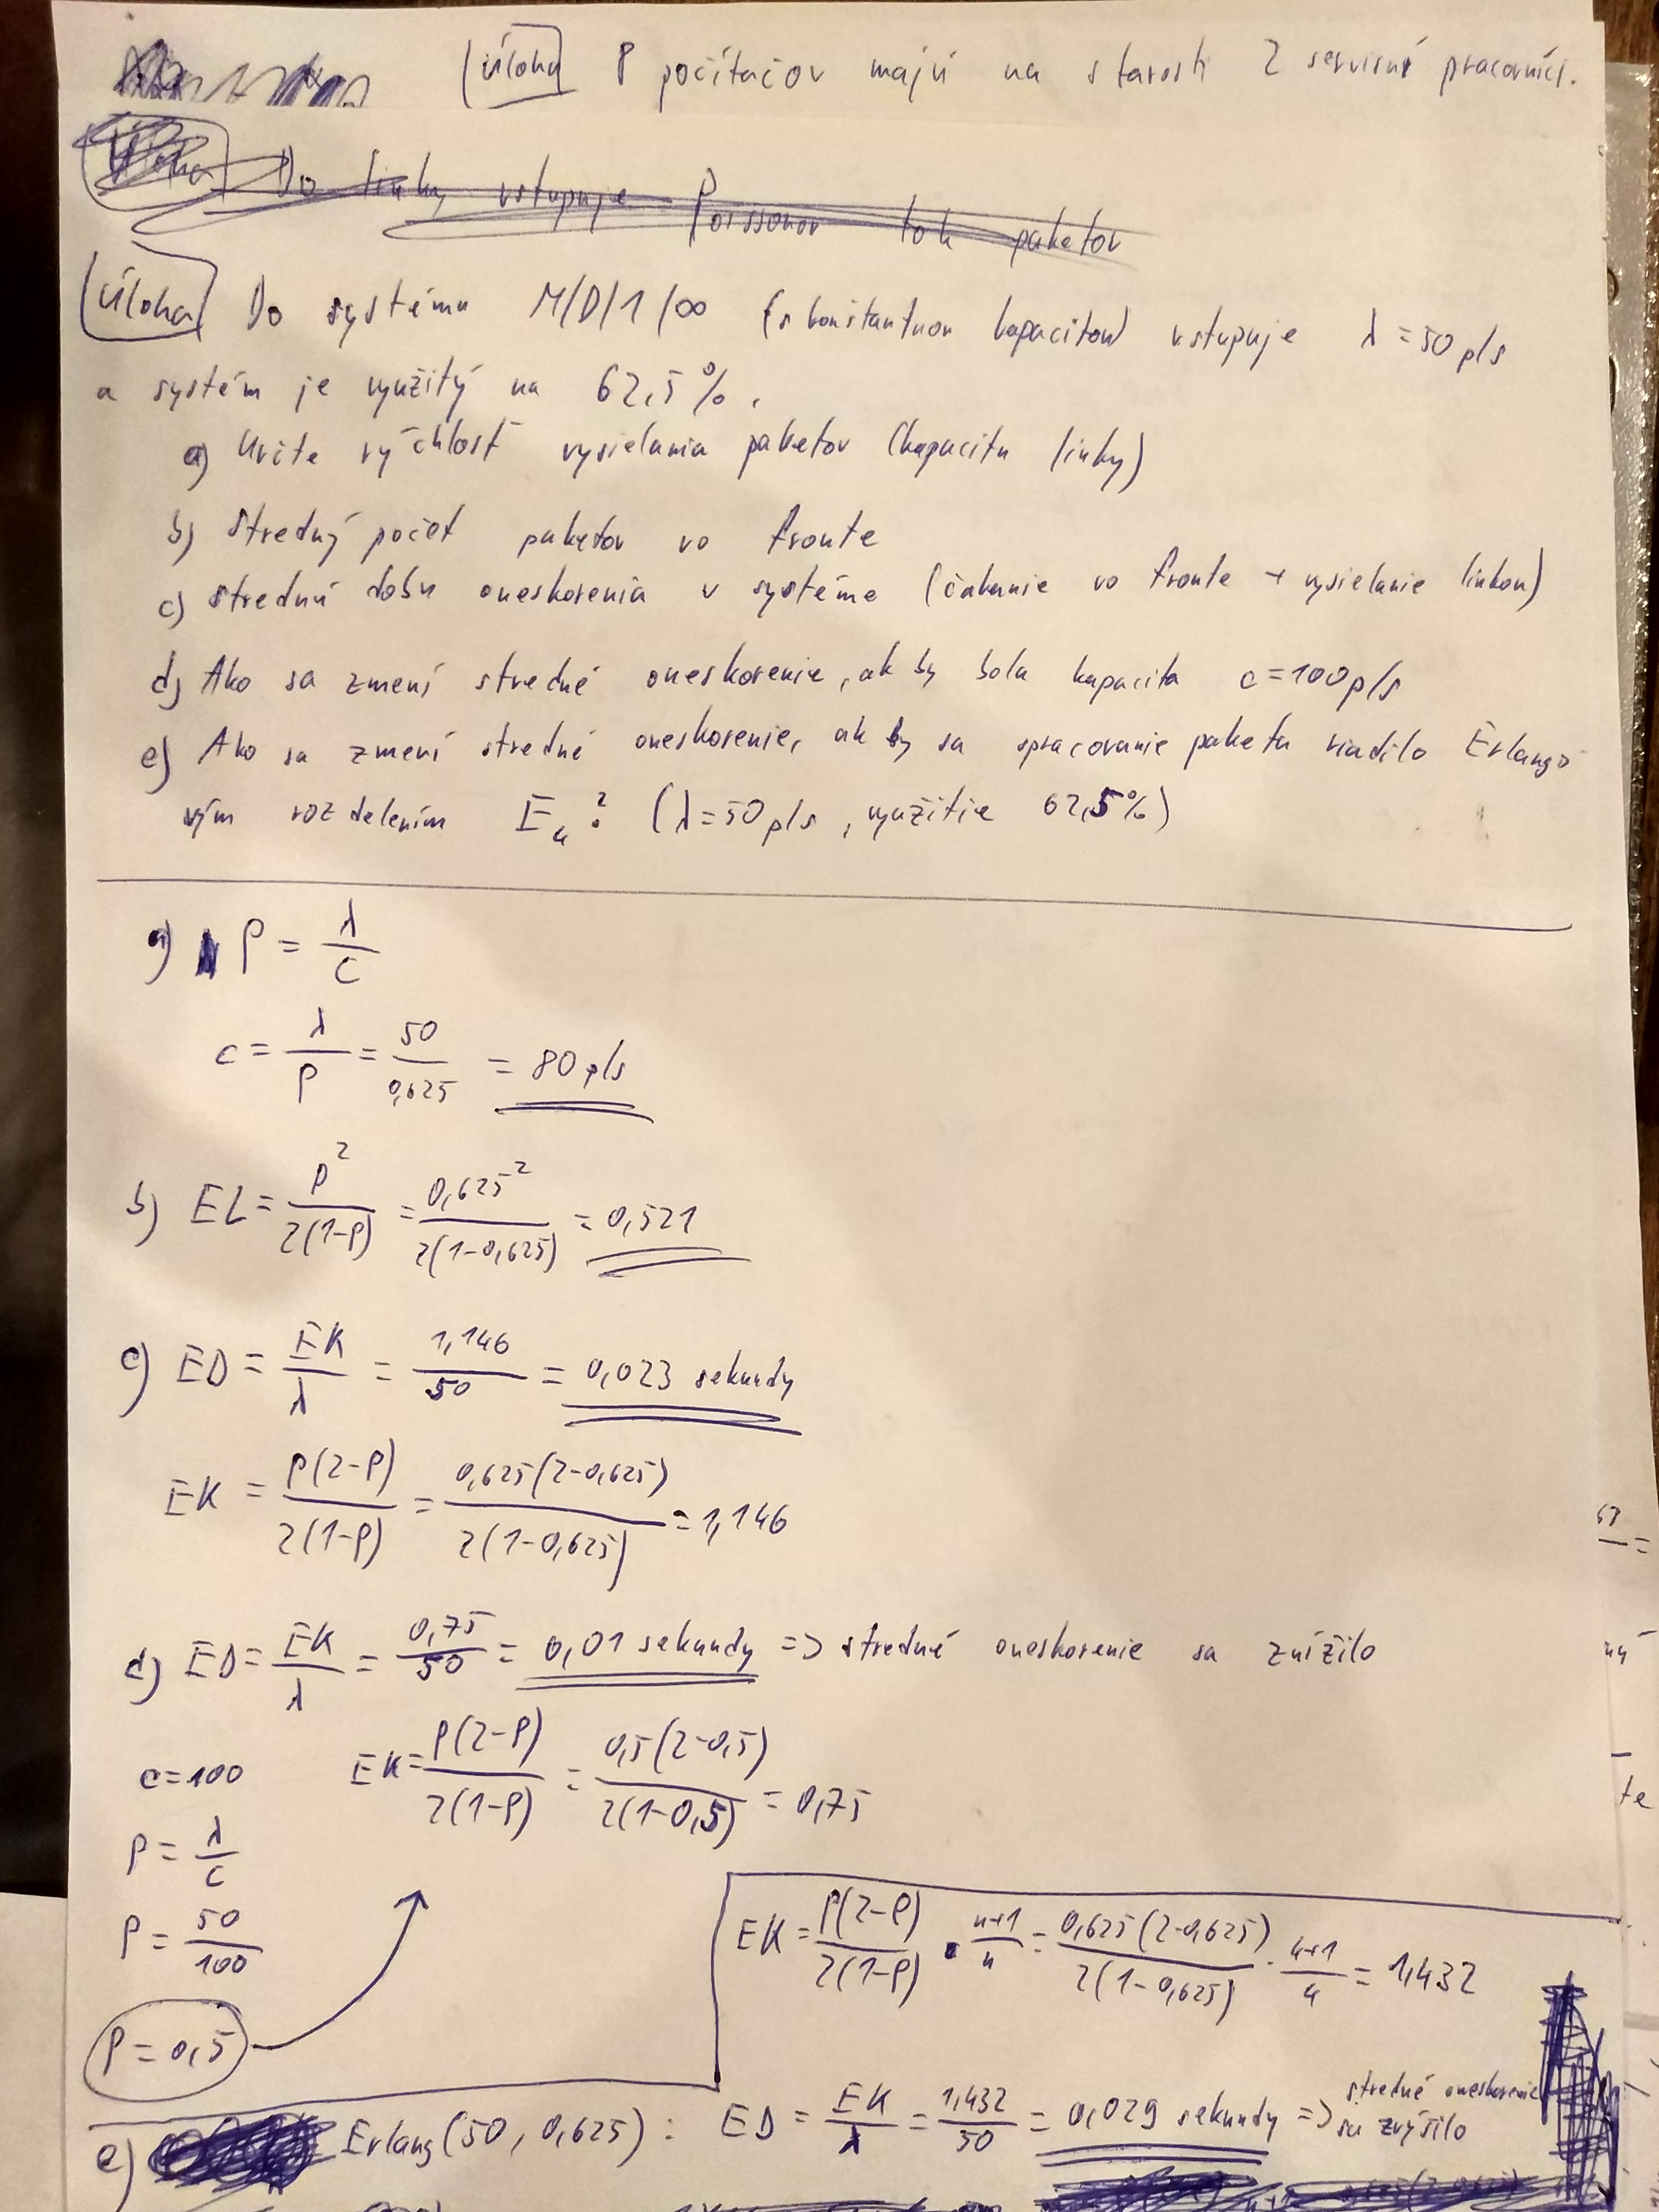 Úloha 8 počítačov majú na starosti 2 servisní pracovníci.
Úloha Do linky vstupuje Poissonov tok paketov
Úloha Do systému M/D/1/∞ (s konštantnou kapacitou) vstupuje λ = 50 p/s
a systém je využitý na 62,5%.
a) Určte rýchlosť vysielania paketov (kapacitu linky)
b) Stredný počet paketov vo fronte
c) strednú dobu oneskorenia v systéme (čakanie vo fronte + vysielanie linkou)
d) Ako sa zmení stredné oneskorenie, ak by bola kapacita c = 100 p/s
e) Ako sa zmení stredné oneskorenie, ak by sa spracovanie paketu riadilo Erlango
vým rozdelením E₄? (λ = 50 p/s, využitie 62,5%)
a) ρ = λ/c
c = λ/ρ = 50/0,625 = 80 p/s
b) EL = ρ²/2(1-ρ) = 0,625²/2(1-0,625) = 0,521
c) ED = EK/λ = 1,146/50 = 0,023 sekundy
EK = ρ(2-ρ)/2(1-ρ) = 0,625(2-0,625)/2(1-0,625) = 1,146
d) ED = EK/λ = 0,75/50 = 0,01 sekundy => stredné oneskorenie sa znížilo
c = 100 EK = ρ(2-ρ)/2(1-ρ) = 0,5(2-0,5)/2(1-0,5) = 0,75
ρ = λ/c
ρ = 50/100
ρ = 0,5
EK = ρ(2-ρ)/2(1-ρ) · n+1/n = 0,625(2-0,625)/2(1-0,625) · 4+1/4 = 1,432
e) Erlang(50, 0,625): ED = EK/λ = 1,432/50 = 0,029 sekundy => stredné oneskorenie
sa zvýšilo